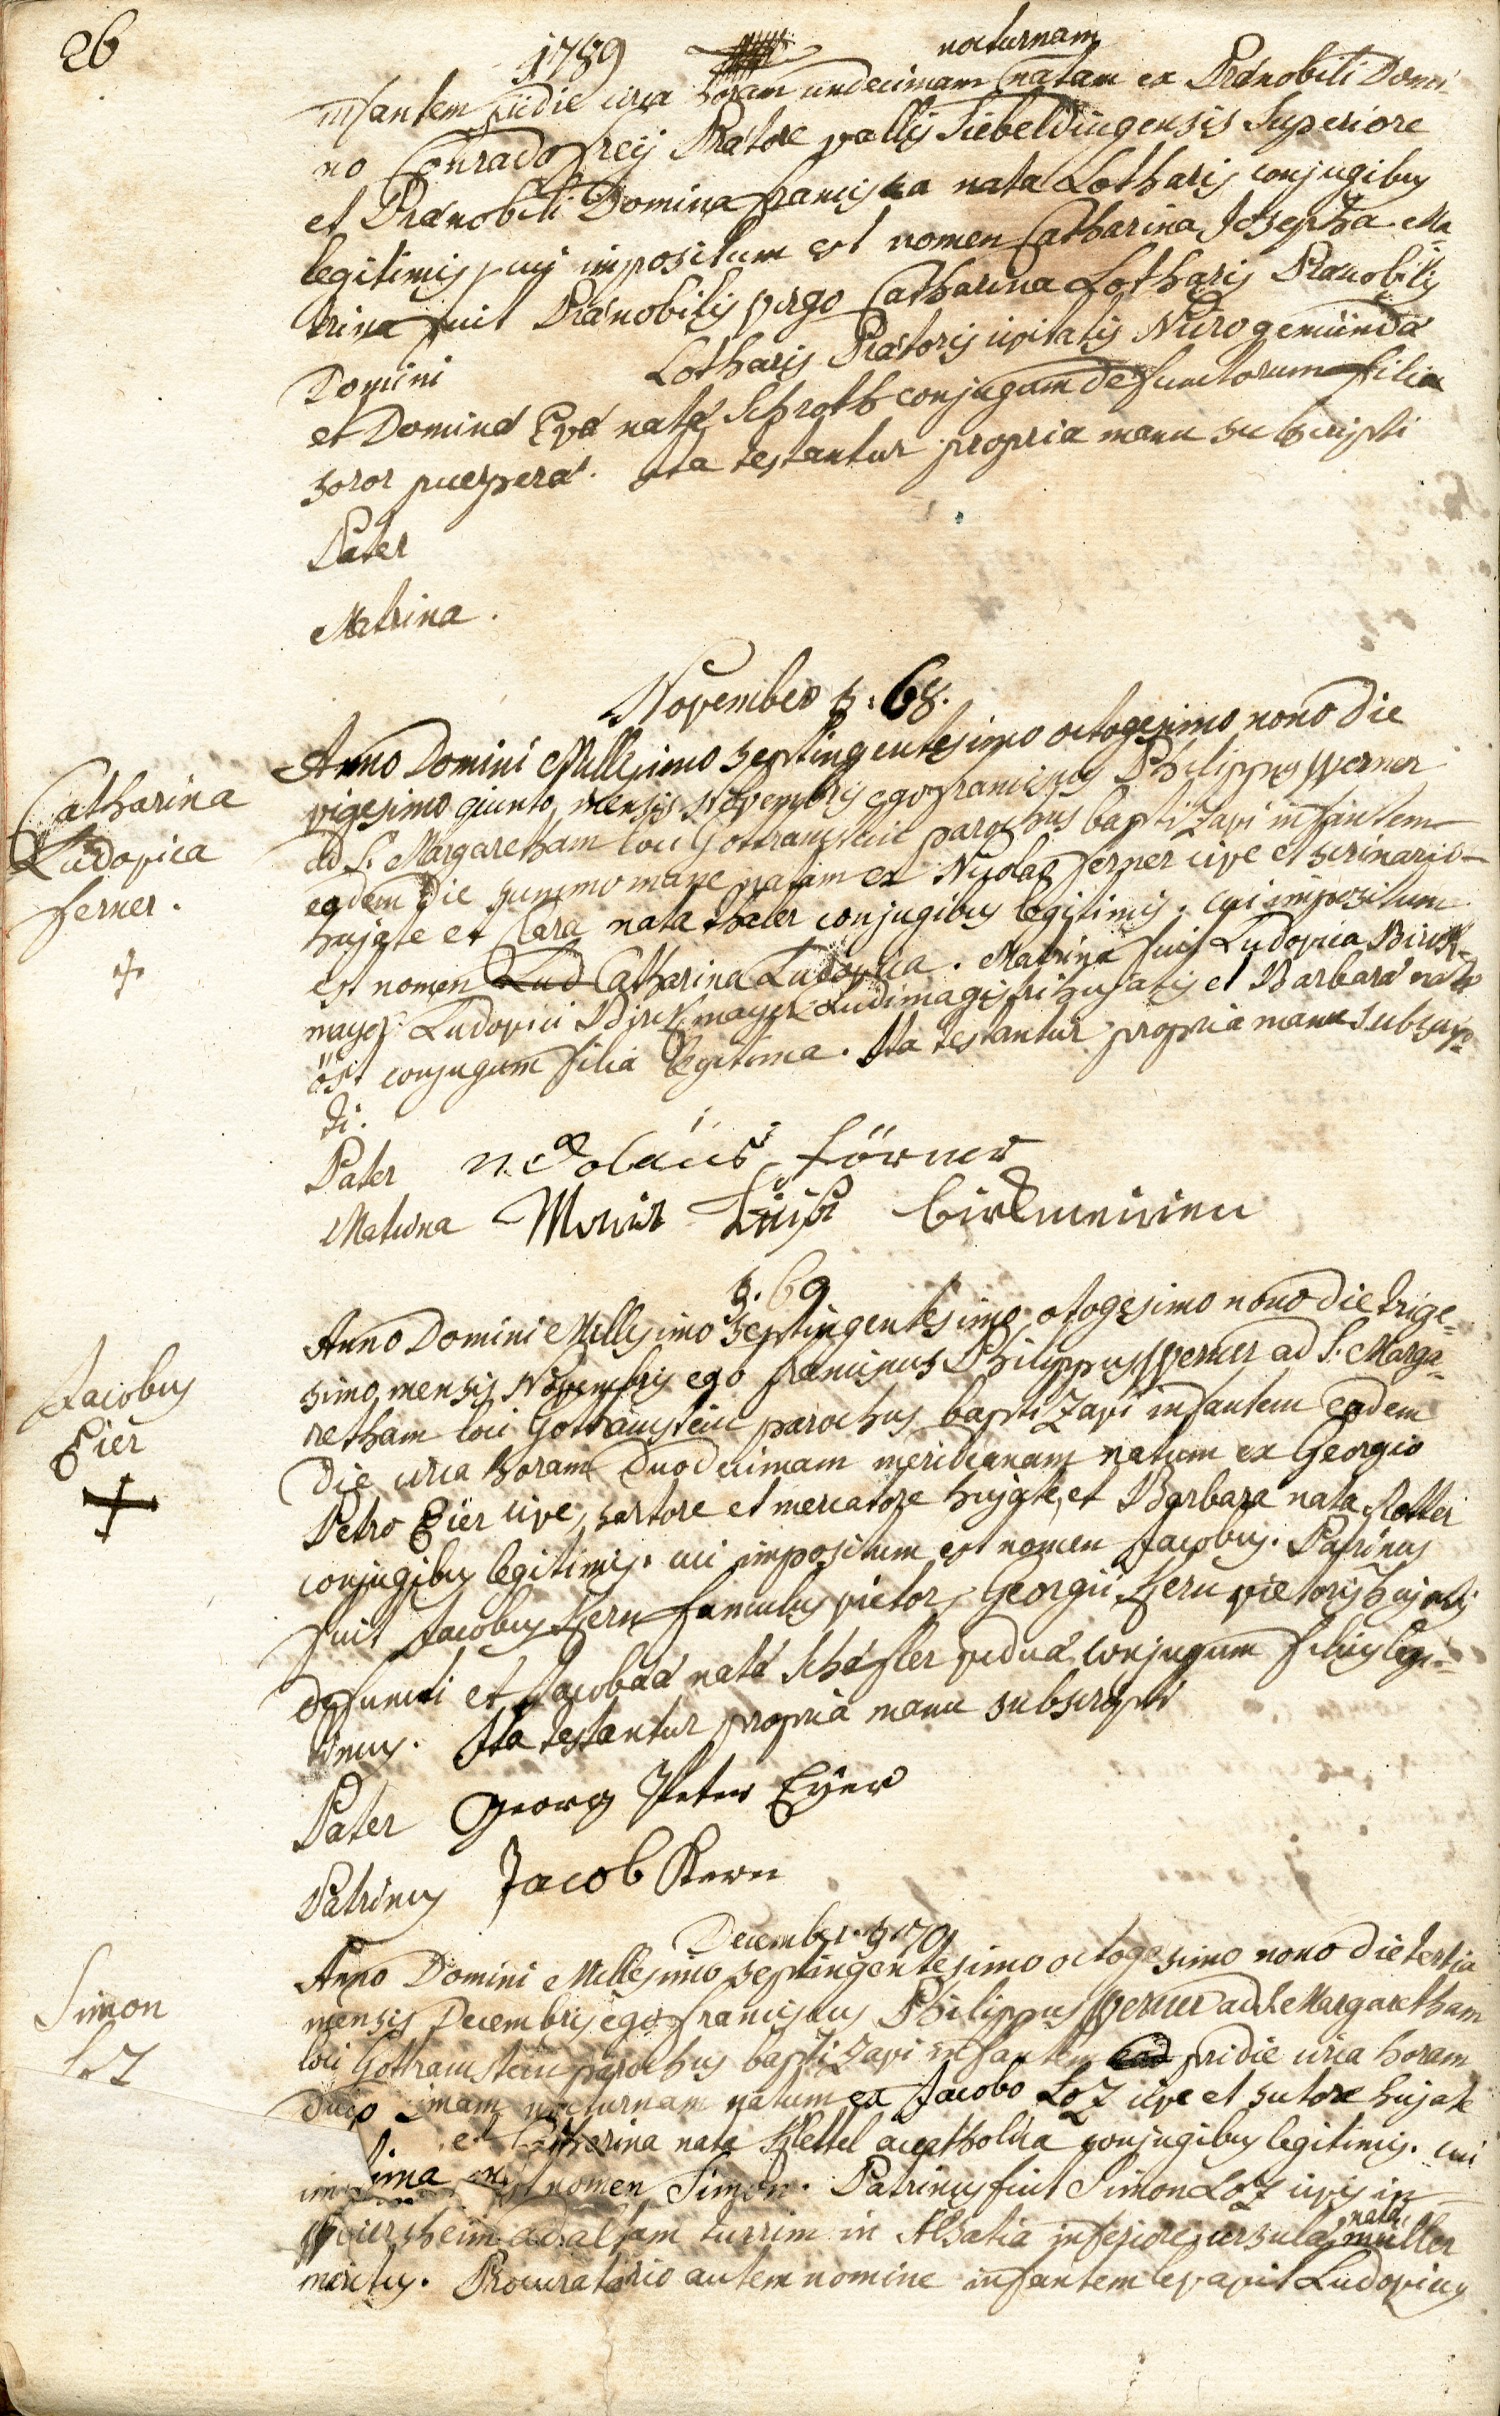 26
1789
nocturnam
infantem pridie circa horam undecimam natam ex Prænobili Domi-
no Conrado Frey Prætore vallis Siebeldingensis Superiore
et Prænobili Domina Francisca nata Lotharij conjugibus
legitimis cui impositum est nomen Catharina Josepha. Ma-
trina fuit Prænobilis virgo Catharina Lotharis Prænobilis
Domini Lotharis Prætoris civitatis Neccrogemündæ
et Dominæ Evæ natæ Schroth conjugum defunctorum filia
soror puerperæ. Ita testantur propria manu subscripti
Pater
Matrina.
November §. 68.
Catharina
Ludovica
Ferner.
+
Anno Domini Millesimo Septingentesimo octogesimo nono die
vigesimo quinto mensis Novembris ego Franciscus Philippus Werner
ad S. Margaretham loci Gottramstein parochus baptizavi infantem
eadem die summo mane natam ex Nicolao Ferner cive et scrinario
hujate et Clara nata thaler conjugibus legitimis. cui impositum
est nomen Lud Catharina Ludovica. Matrina fuit Ludovica Birck-
mayer Ludovici Birckmayer Ludimagistri hujatis et Barbaræ natæ
öst conjugum filia legitima. Ita testantur propria manu subscrip-
ti.
Pater nicolaüs förner
Matrina Maria Luisi birckmeirien
§. 69
Jacobus
Eïer
+
Anno Domini Millesimo Septingentesimo otogesimo nono die trige-
simo mensis Novembris ego Franciscus Philippus Werner ad S. Marga-
retham loci Gottramstein parochus baptizavi infantem eadem
die circa horam duodecimam meridianam natum ex Georgio
Petro Eïer cive, sartore et mercatore hujate, et Barbara nata Rotter
conjugibus legitimis. cui impositum est nomen Jacobus. Patrinus
fuit Jacobus Kern famulus vietor, Georgii Kern vietoris hujatis
defuncti et Jacobææ natæ Schäfler viduæ conjugum filius legi-
timus. Ita testantur propria manu subscripti
Pater Georg Peter Eyer
Patrinus Jacob Kern
December. § 70
Simon
Loz
Anno Domini Millesimo Septingentesimo octogesimo nono die tertia
mensis Decembris ego Franciscus Philippus Werner ad S. Margaretham
loci Gottramstein parochus baptizavi infantem ead pridie circa horam
duo imam nocturnam natum ex Jacobo Loz cive et sutore hujate
et Catharina nata Klettel acatholica conjugibus legitimis. cui
im nomen Simon. Patrinus fuit Simon Loz civis in
Weiersheim ad altam turrim in Alsatia inferiore, ursulæ natæ müller
maritus. Procuratorio autem nomine infantem levavit Ludovicus